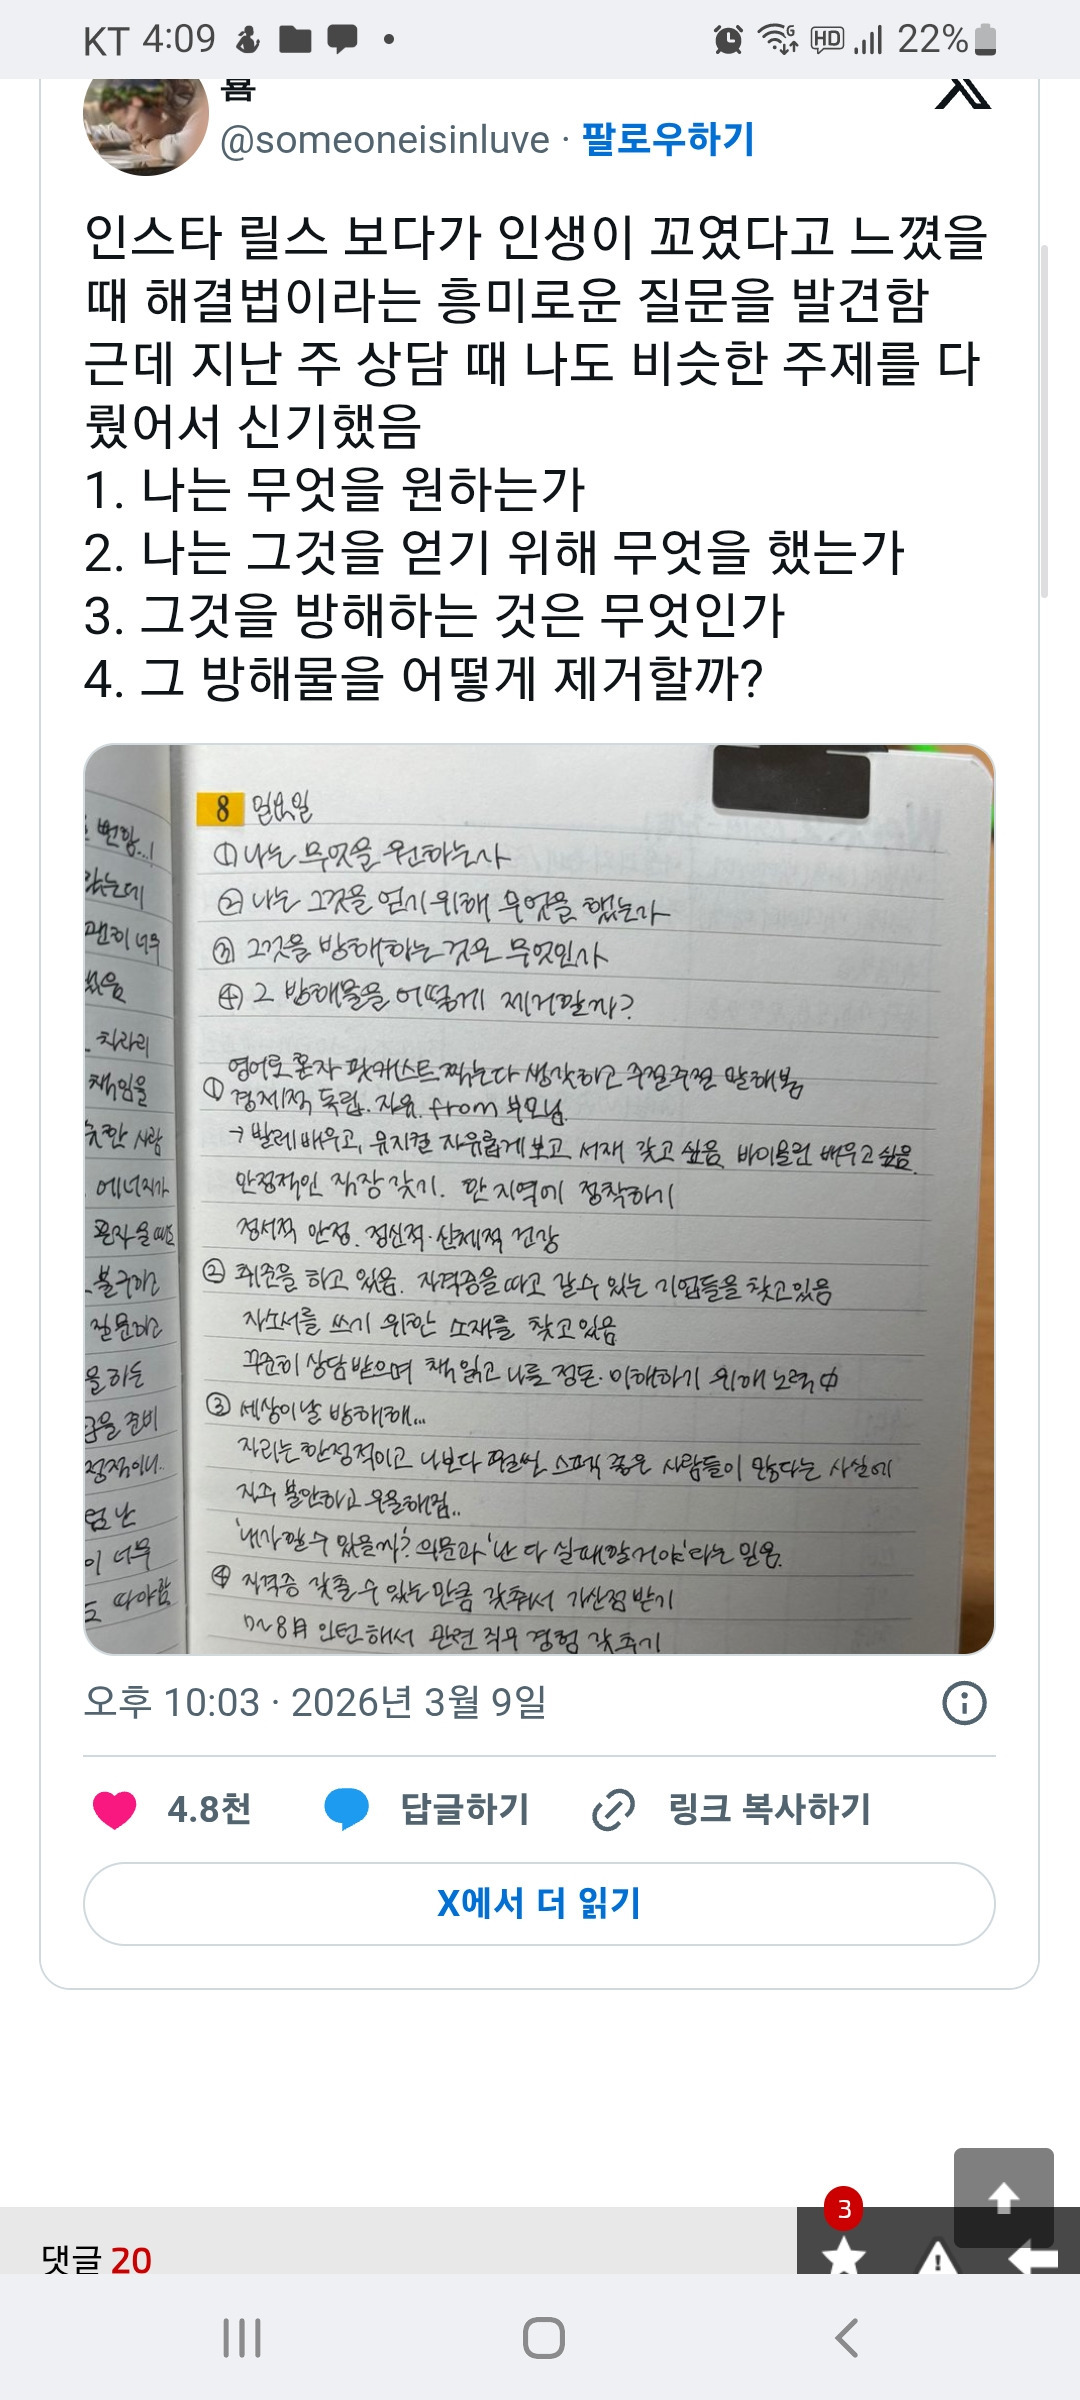 KT 4:09
HD 22%
욤
@someoneisinluve · 팔로우하기
인스타 릴스 보다가 인생이 꼬였다고 느꼈을
때 해결법이라는 흥미로운 질문을 발견함
근데 지난 주 상담 때 나도 비슷한 주제를 다
뤘어서 신기했음
1. 나는 무엇을 원하는가
2. 나는 그것을 얻기 위해 무엇을 했는가
3. 그것을 방해하는 것은 무엇인가
4. 그 방해물을 어떻게 제거할까?
번황..!
많는데
괜히 너무
차라리
책임을
사람
에너지가
혼자 울 때도
불구하고
질문하고
을 하는
준비
엄 난
이 너무
따아람
8 일요일
① 나는 무엇을 원하는가
② 나는 그것을 얻기 위해 무엇을 했는가
③ 그것을 방해하는 것은 무엇인가
④ 그 방해물을 어떻게 제거할까?
영어로 혼자 팟캐스트 찍는다 생각하고 주절주절 말해봄
① 경제적 독립. 자유. from 부모님.
→ 발레 배우고, 뮤지컬 자유롭게 보고 서재 갖고 싶음 바이올린 배우고 싶음.
안정적인 직장 갖기. 한 지역에 정착하기
정서적 안정. 정신적·신체적 건강
② 취준을 하고 있음. 자격증을 따고 갈 수 있는 기업들을 찾고 있음
자소서를 쓰기 위한 소재를 찾고 있음
꾸준히 상담 받으며 책 읽고 나를 정돈·이해하기 위해 노력中
③ 세상이 날 방해해...
자리는 한정적이고 나보다 훨씬 스펙 좋은 사람들이 많다는 사실에
자주 불안하고 우울해짐..
'내가 할 수 있을까?' 의문과 '난 다 실패할 거야'라는 믿음.
④ 자격증 갖출 수 있는 만큼 갖춰서 가산점 받기
7~8月 인턴 해서 관련 직무 경험 갖추기
오후 10:03 · 2026년 3월 9일
4.8천 답글하기 링크 복사하기
X에서 더 읽기
3
댓글 20